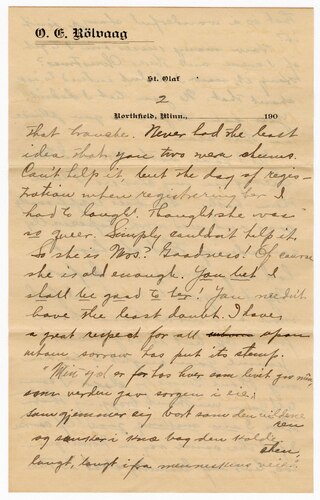 O. E. Rölvaag
St. Olaf
2
Northfield, Minn., 190
that branche. Never had the least
idea that you two were chums.
Can't help it, but the day of regis-
tration when registering her I
had to laugh! Thought she was
so queer. Simply couldn't help it.
So she is Mrs.? Goodness! Of course
she is old enough. You bet I
shall be good to her. You needn't
have the least doubt. I have
a great respect for all upon
whom sorrow has put its stamp.
"Min for hos hver som livet gav
som verden gav sorgen i eie,
som gjemmer sig bort som den vildene
ren
og i bag den
langt, langt ifra menneskens veie"